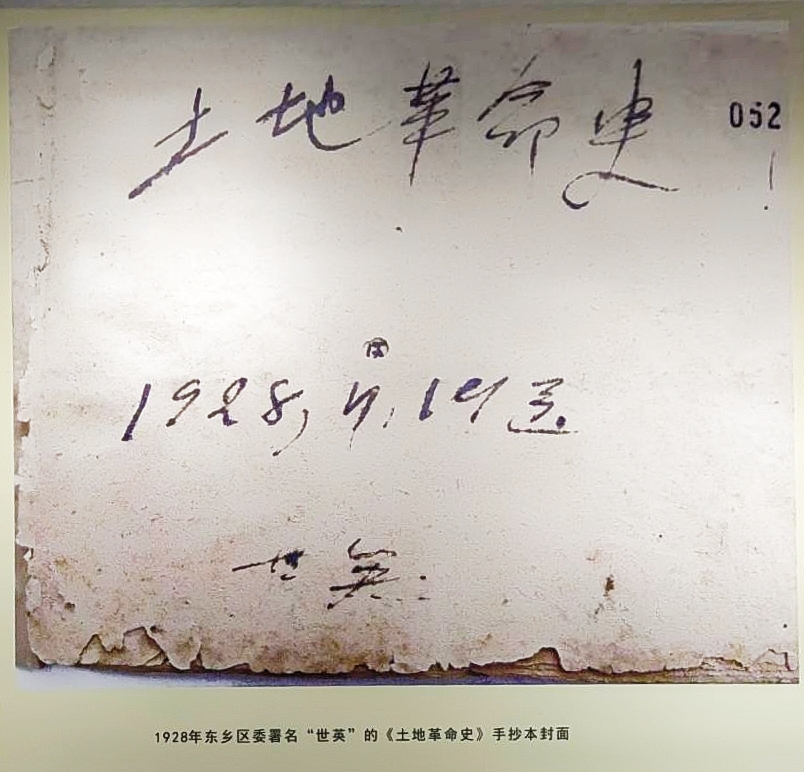 土地革命史
052
1928,4,14送
世英
1928年东乡区委署名“世英”的《土地革命史》手抄本封面